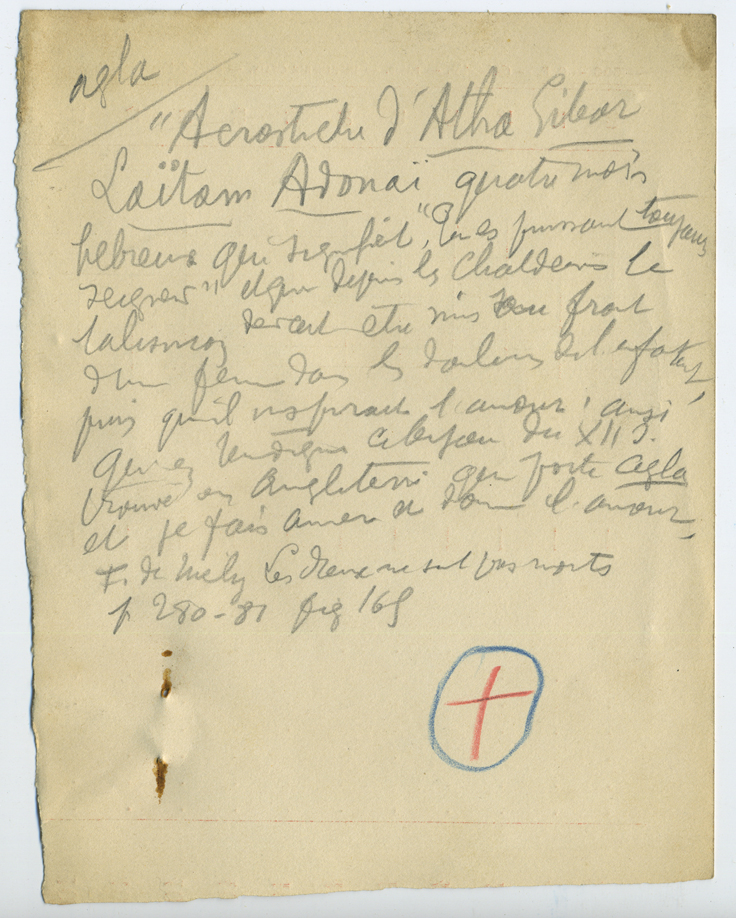 agla
"Acrostiche d'Atha Gibor
Laïtam Adonaï quatre mots
hebreux qui signifiet "Tu es puissant toujours
seigneur" et que depuis les Chaldeens le
talisman devait etre mis sur au front
d'une femme dans les douleurs de l'enfantemt,
puis qu'il inspirait l'amour; ainsi
qu'en temoigne du XII S.
trouvé en Angleterre qui porte agla
et je fais aimer et donne l'amour,
F. de Mely Les dieux ne sont pas morts
p 280-81 fig 165